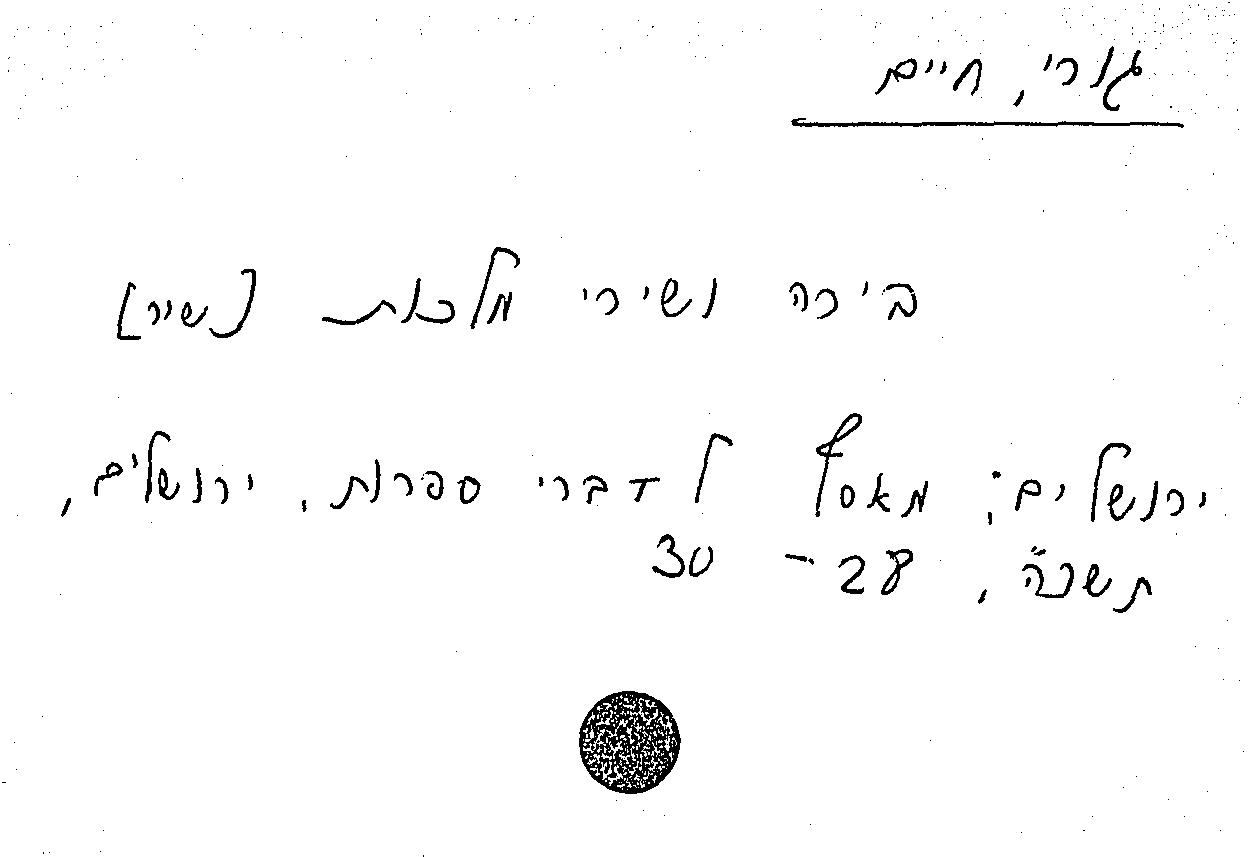 גורי, חיים
בירה ושירי מלכות [שיר]
ירושלים; מאסף לדברי ספרות. ירושלים,
תשכ"ה, 28 - 30